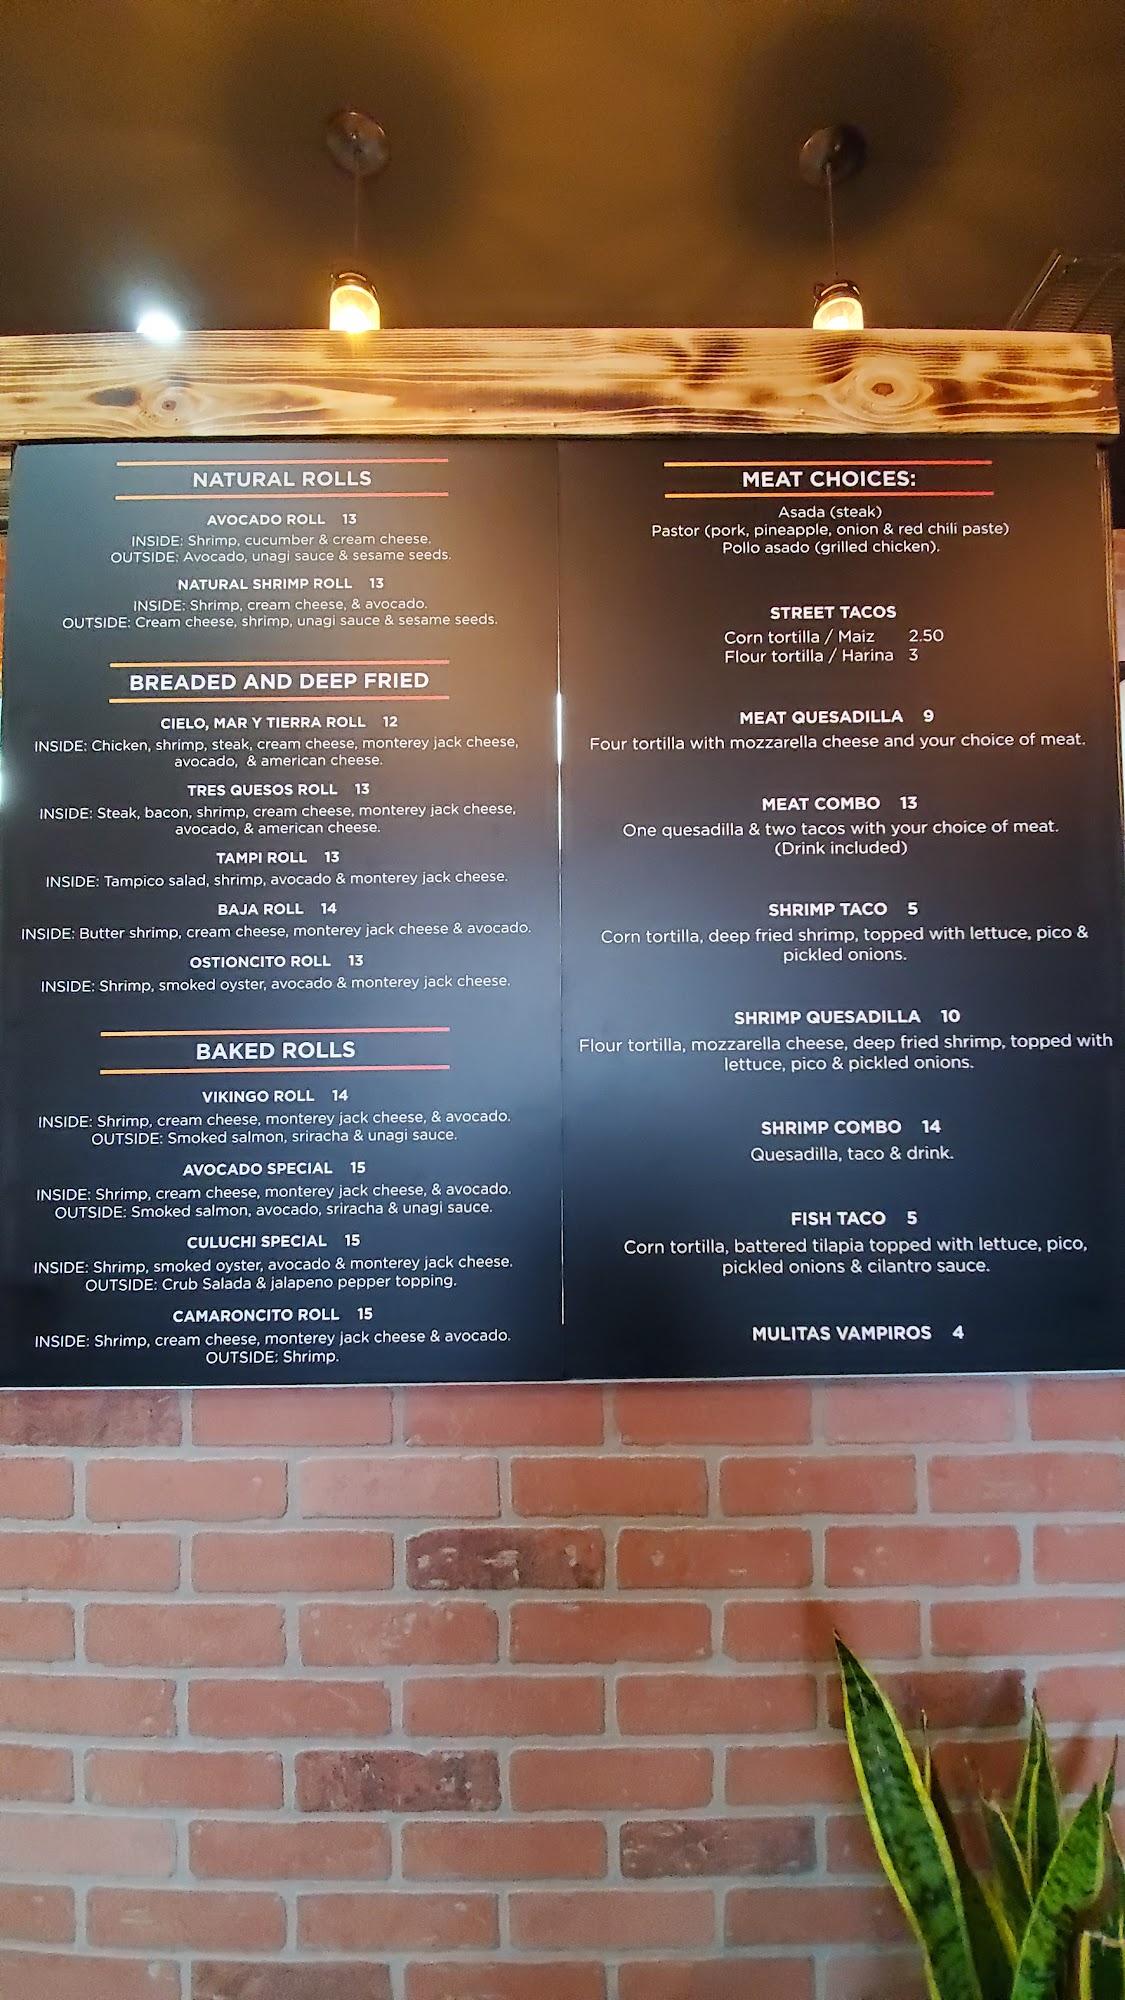 NATURAL ROLLS
AVOCADO ROLL 13
INSIDE: Shrimp, cucumber & cream cheese.
OUTSIDE: Avocado, unagi sauce & sesame seeds.
NATURAL SHRIMP ROLL 13
INSIDE: Shrimp, cream cheese, & avocado.
OUTSIDE: Cream cheese, shrimp, unagi sauce & sesame seeds.
BREADED AND DEEP FRIED
CIELO, MAR Y TIERRA ROLL 12
INSIDE: Chicken, shrimp, steak, cream cheese, monterey jack cheese,
avocado, & american cheese.
TRES QUESOS ROLL 13
INSIDE: Steak, bacon, shrimp, cream cheese, monterey jack cheese,
avocado, & american cheese.
TAMPI ROLL 13
INSIDE: Tampico salad, shrimp, avocado & monterey jack cheese.
BAJA ROLL 14
INSIDE: Butter shrimp, cream cheese, monterey jack cheese & avocado.
OSTIONCITO ROLL 13
INSIDE: Shrimp, smoked oyster, avocado & monterey jack cheese.
BAKED ROLLS
VIKINGO ROLL 14
INSIDE: Shrimp, cream cheese, monterey jack cheese, & avocado.
OUTSIDE: Smoked salmon, sriracha & unagi sauce.
AVOCADO SPECIAL 15
INSIDE: Shrimp, cream cheese, monterey jack cheese, & avocado.
OUTSIDE: Smoked salmon, avocado, sriracha & unagi sauce.
CULUCHI SPECIAL 15
INSIDE: Shrimp, smoked oyster, avocado & monterey jack cheese.
OUTSIDE: Crub Salada & jalapeno pepper topping.
CAMARONCITO ROLL 15
INSIDE: Shrimp, cream cheese, monterey jack cheese & avocado.
OUTSIDE: Shrimp.
MEAT CHOICES:
Asada (steak)
Pastor (pork, pineapple, onion & red chili paste)
Pollo asado (grilled chicken).
STREET TACOS
Corn tortilla / Maiz 2.50
Flour tortilla / Harina 3
MEAT QUESADILLA 9
Four tortilla with mozzarella cheese and your choice of meat.
MEAT COMBO 13
One quesadilla & two tacos with your choice of meat.
(Drink included)
SHRIMP TACO 5
Corn tortilla, deep fried shrimp, topped with lettuce, pico &
pickled onions.
SHRIMP QUESADILLA 10
Flour tortilla, mozzarella cheese, deep fried shrimp, topped with
lettuce, pico & pickled onions.
SHRIMP COMBO 14
Quesadilla, taco & drink.
FISH TACO 5
Corn tortilla, battered tilapia topped with lettuce, pico,
pickled onions & cilantro sauce.
MULITAS VAMPIROS 4